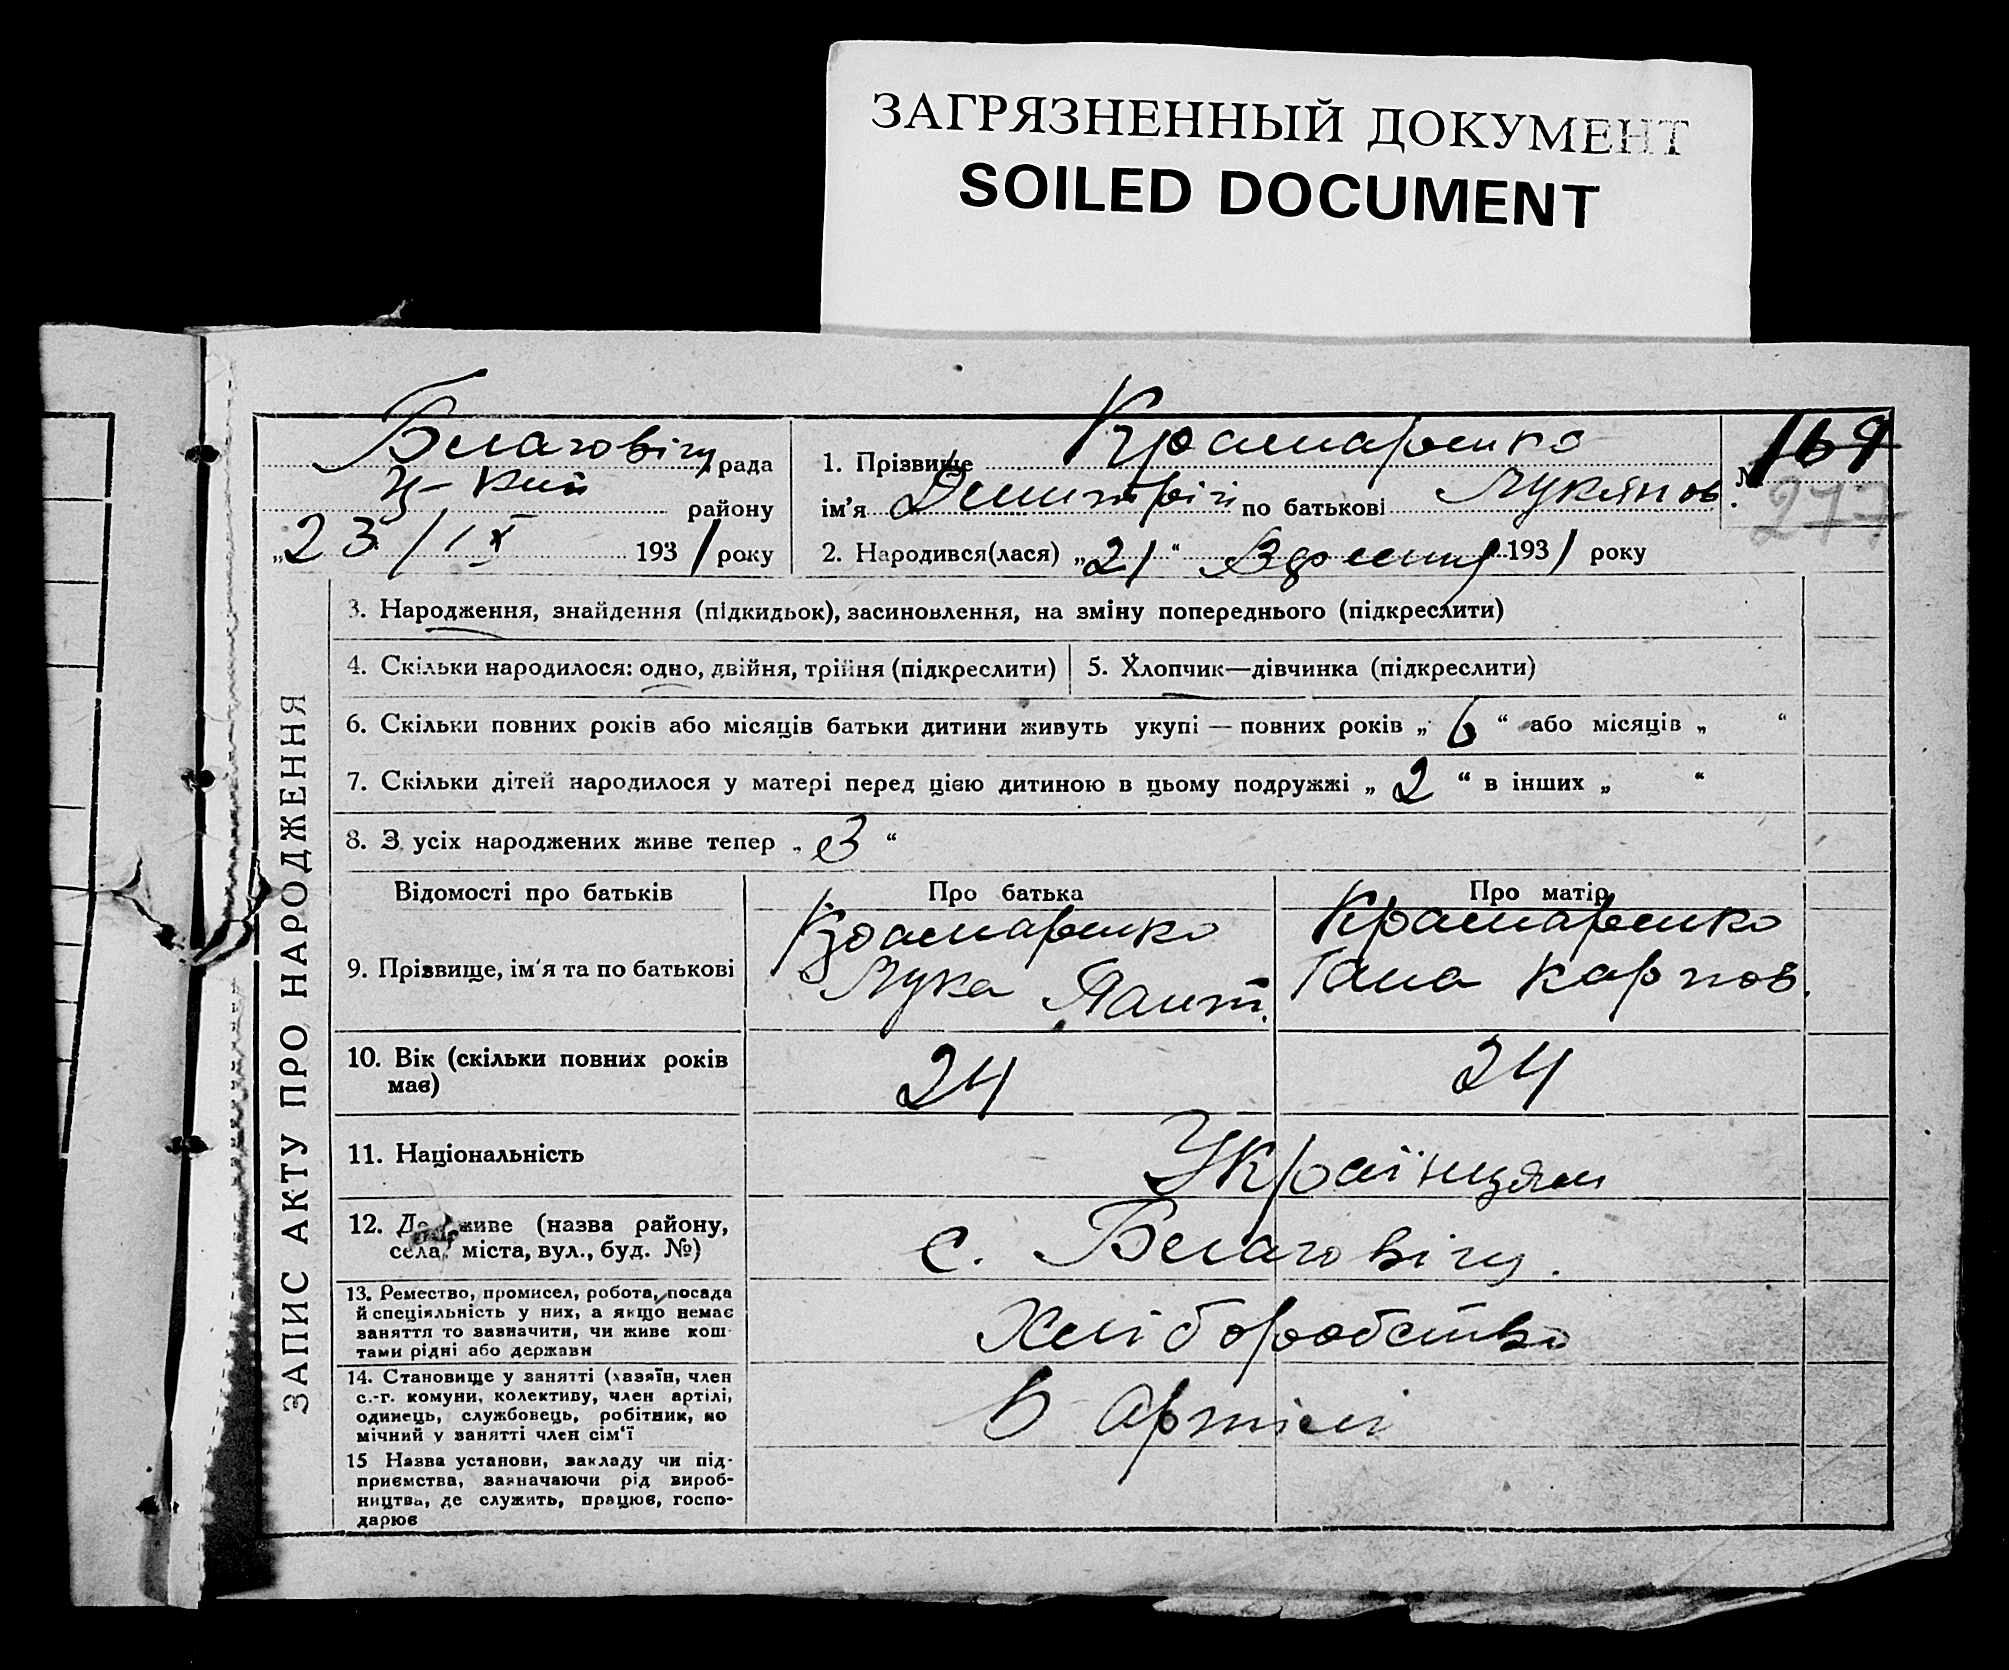 ЗАГРЯЗНЕННЫЙ ДОКУМЕНТ
SOILED DOCUMENT
рада
району
„23/IX 1931 року
1. Прізвище Крамаренко
ім'я Дмитрій по батькові Лукянов.
№ 169
277
2. Народився(лася) „21“ 1931 року
ЗАПИС АКТУ ПРО НАРОДЖЕННЯ
3. Народження, знайдення (підкидьок), засиновлення, на зміну попереднього (підкреслити)
4. Скільки народилося: одно, двійня, трійня (підкреслити)
5. Хлопчик—дівчинка (підкреслити)
6. Скільки повних років або місяців батьки дитини живуть укупі — повних років „6“ або місяців „ “
7. Скільки дітей народилося у матері перед цією дитиною в цьому подружжі „2“ в інших „ “
8. З усіх народжених живе тепер „3“
Відомості про батьків
Про батька
Про матір
9. Прізвище, ім'я та по батькові
Крамаренко
Лука Пант.
Крамаренко
Гана Карпов.
10. Вік (скільки повних років
має)
24
24
11. Національність
Українцями
12. Де живе (назва району,
села, міста, вул., буд. №)
с.
13. Ремество, промисел, робота, посада
й спеціяльність у них, а якщо немає
заняття то зазначити, чи живе кош-
тами рідні або держави
Хліборобство
14. Становище у занятті (хазяїн, член
с.-г. комуни, колективу, член артілі,
одинець, службовець, робітник, по
мічний у занятті член сім'ї
В артілі
15 Назва установи, закладу чи під-
приємства, зазначаючи рід вироб-
ництва, де служить, працює, госпо-
дарює